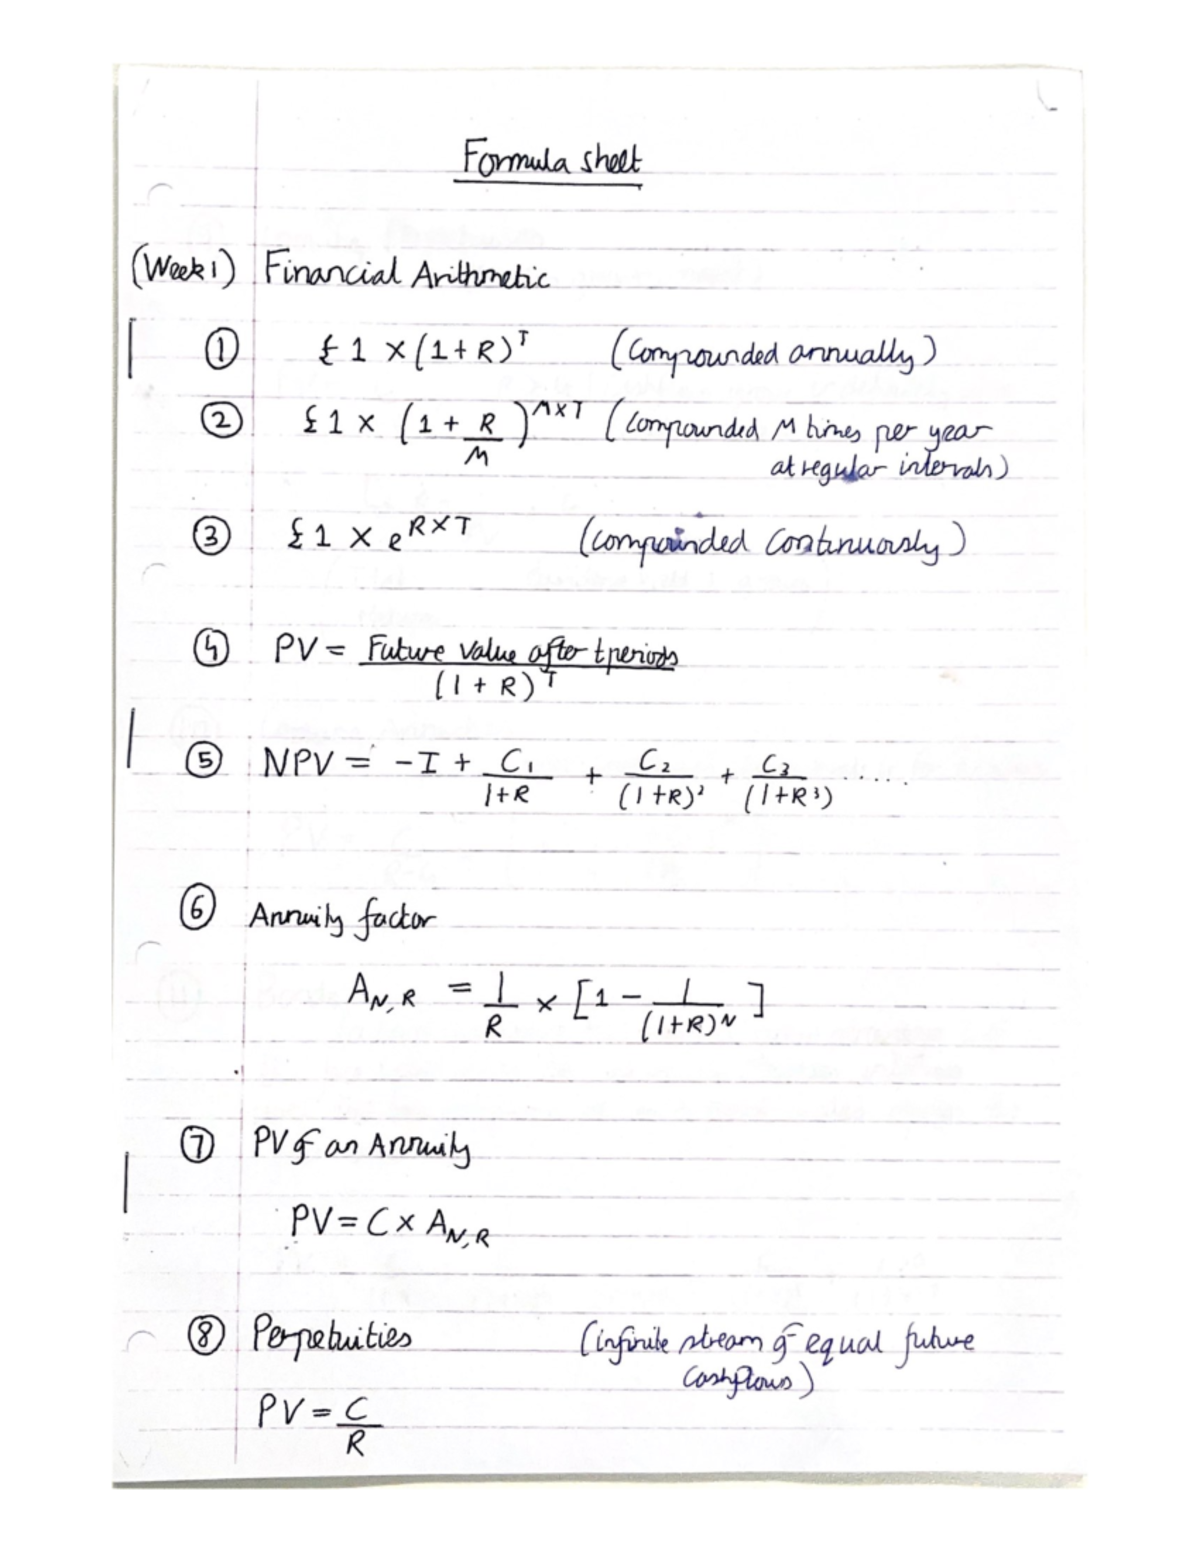 Formula sheet
(Week 1) Financial Arithmetic
① £1 × (1+R)^T (Compounded annually)
② £1 × (1 + R/M)^M×T (Compounded M times per year
at regular intervals)
③ £1 × e^R×T (compounded continuously)
④ PV = Future value after t periods / (1+R)^T
⑤ NPV = -I + C₁/1+R + C₂/(1+R)² + C₃/(1+R³) ......
⑥ Annuity factor
A_N,R = 1/R × [1 - 1/(1+R)^N]
⑦ PV of an Annuity
PV = C × A_N,R
⑧ Perpetuities (infinite stream of equal future
cashflows)
PV = C/R